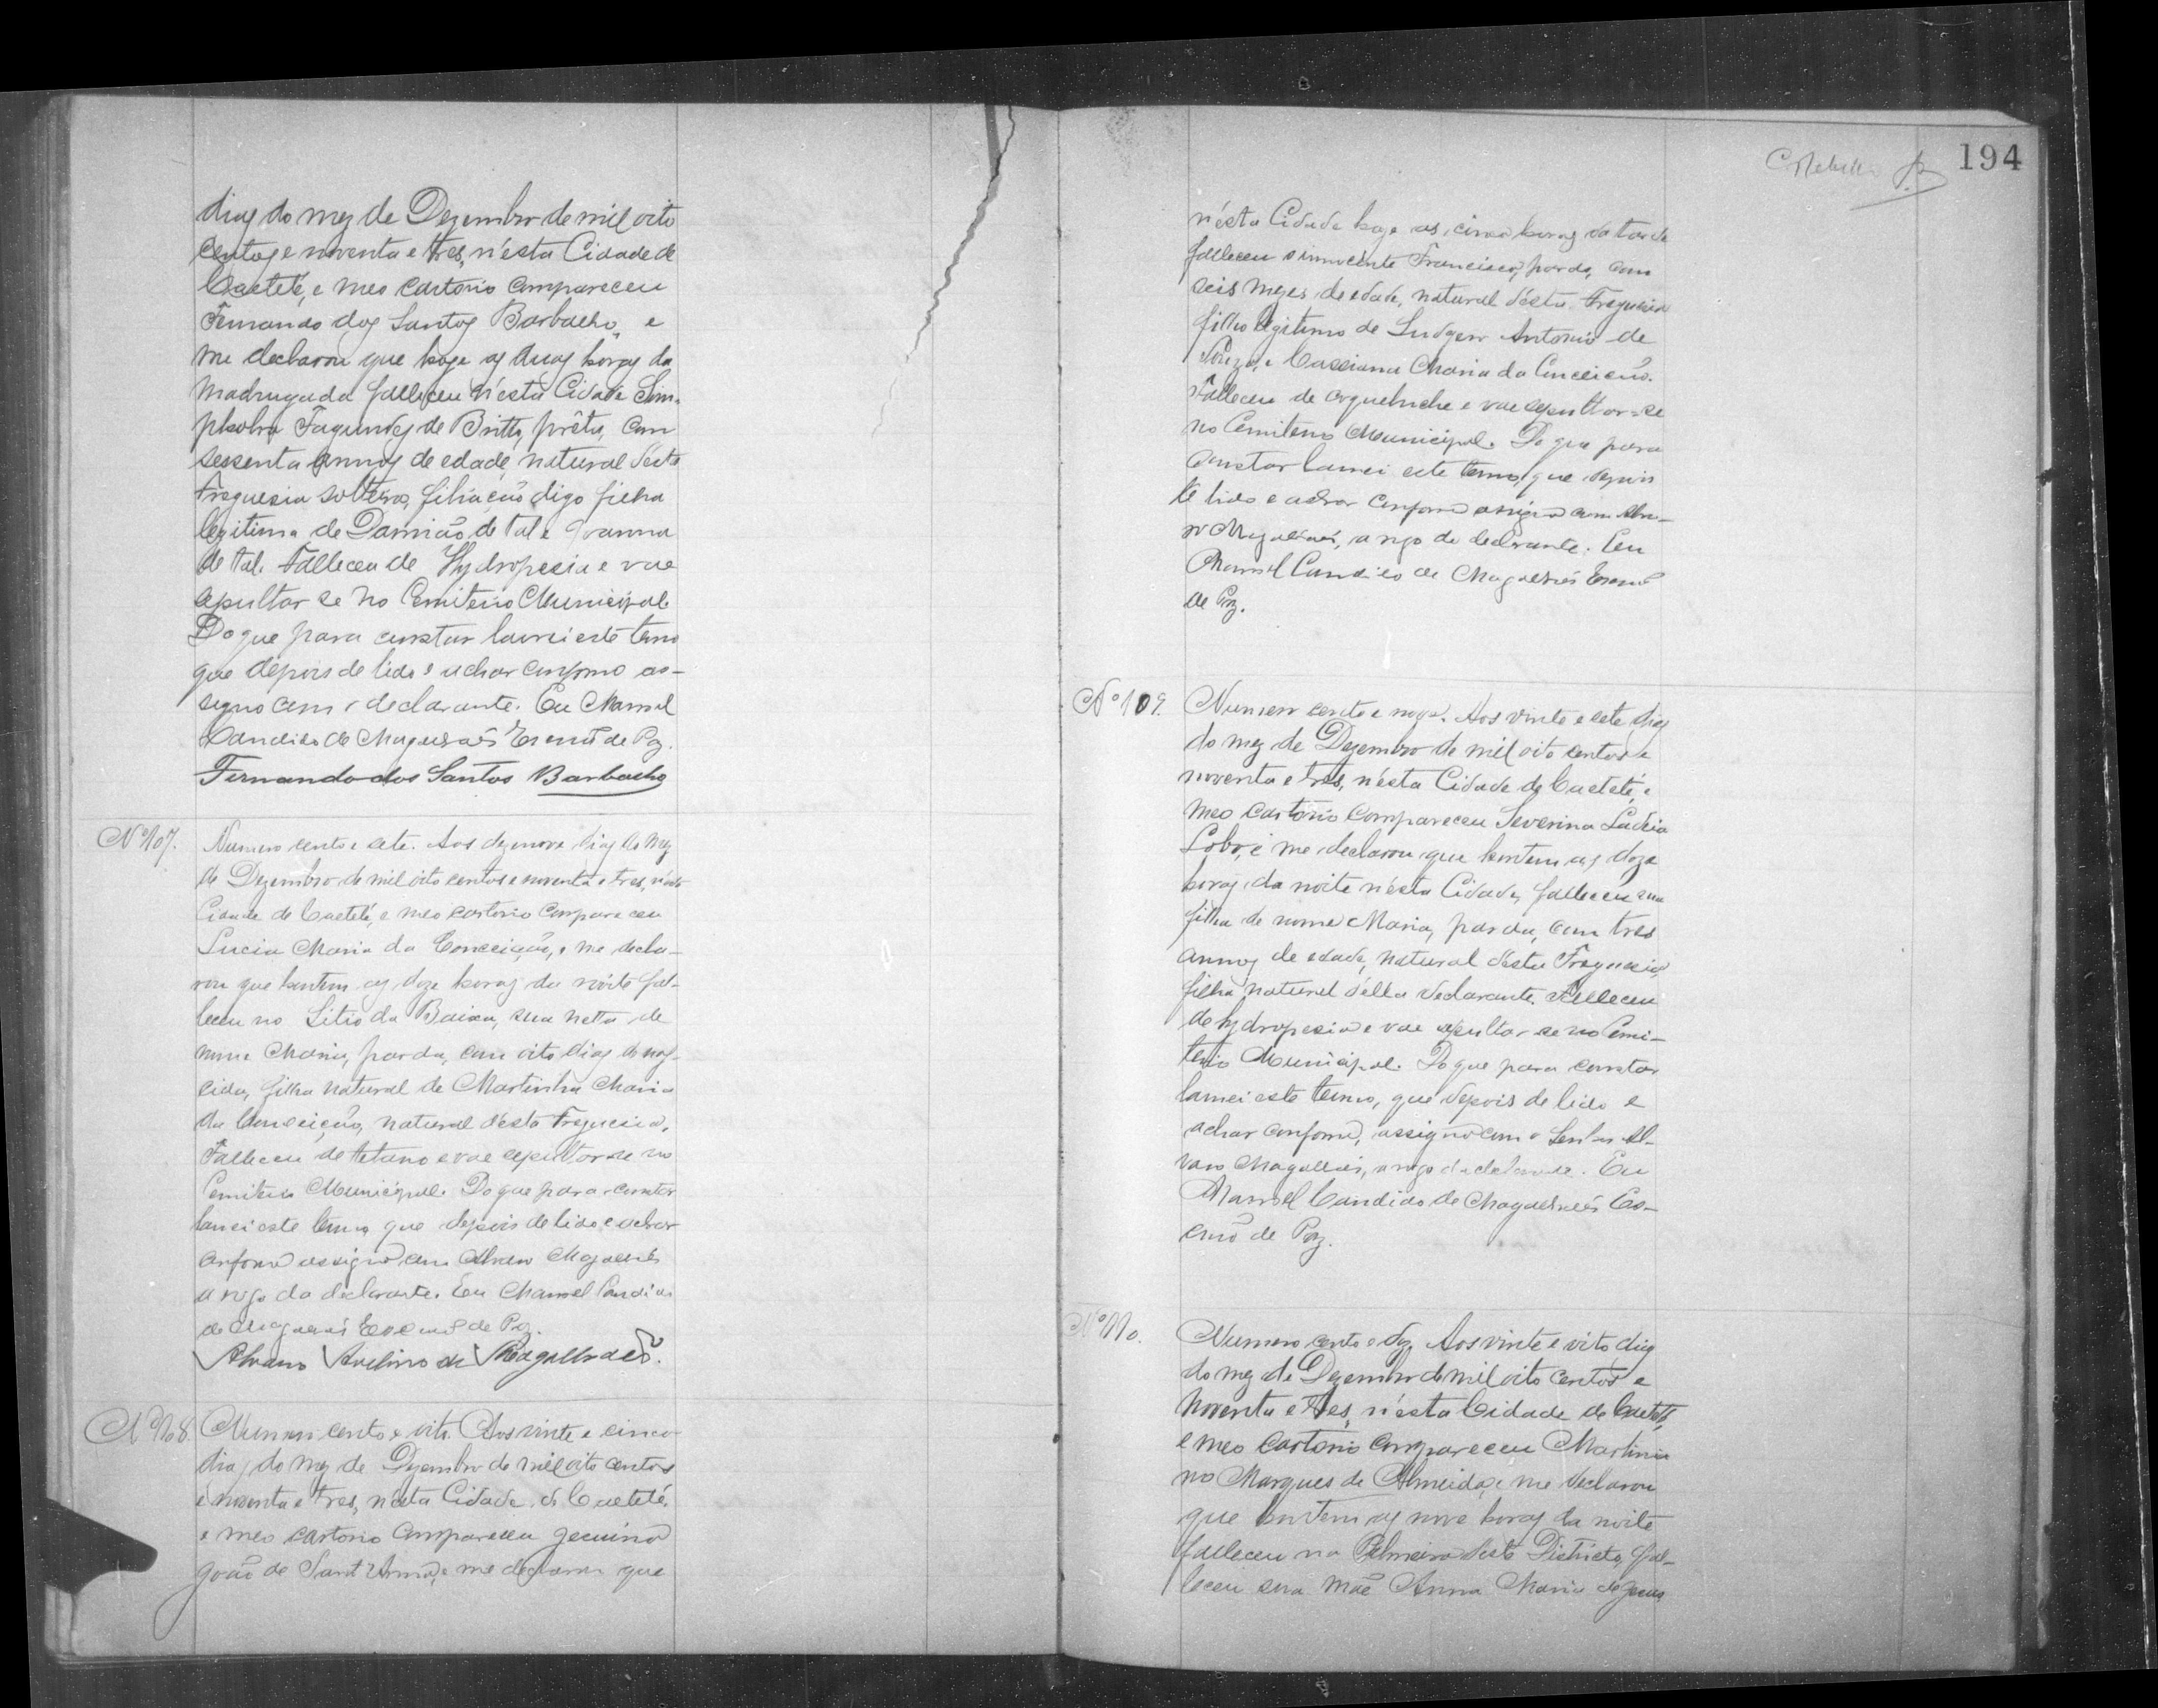 dias do mez de Dezembro de mil oito
centos e noventa e tres, n'esta Cidade de
Caeteté, e meo cartorio compareceu
Fernando dos Santos Barbacho, e
me declarou que hoje as duas horas da
madrugada falleceu n'esta Cidade Sim-
Fagundes de Britto, prêta, com
sessenta annos de edade, natural desta
Freguesia solteira, filiação digo filha
legitima de Damião de tal e Joanna
de tal. Falleceu de Hydropesia e vae
sepultar se no Cemiterio Municipal.
Do que para constar lavrei este termo
que depois de lido e achar conforme as-
signo com o declarante. Eu Manoel
Candido de Magalhães Escrivão de Paz.
Fernando dos Santos Barbacho
Nº 107.
Numero cento e sete. Aos dezenove dias do mez
de Dezembro de mil oito centos e noventa e tres, n'esta
Cidade de Caeteté, e meo cartorio compareceu
Lucia Maria da Conceição, e me decla-
rou que hontem as doze horas da noite fal-
leceu no Sitio da Baixa, sua netta de
nome Maria, parda, com oito dias de nas-
cida, filha natural de Martinha Maria
da Conceição, natural d'esta Freguesia.
Falleceu de tetano e vae sepultar se no
Cemiterio Municipal. Do que para constar
lavrei este termo que depois de lido e achar
conforme assigno com Alvaro Magalhães
a rogo da declarante. Eu Manoel Candido
de Magalhães Escrivão de Paz.
Alvaro Avelino de Magalhães.
Nº 108.
Numero cento e oito. Aos vinte e cinco
dias do mez de Dezembro de mil oito centos
e noventa e tres, n'esta Cidade de Caeteté,
e meo cartorio compareceu Jecuino
João de Sant'Anna, e me declarou que
194
n'esta Cidade hoje as cinco horas da tarde
falleceu o innocente Francisco, pardo, com
seis mezes de edade, natural d'esta Freguesia
filho legitimo de Ludgero Antonio de
Souza, e Cassiana Maria da Conceição.
Falleceu de coqueluche e vae sepultar-se
no Cemiterio Municipal. Do que para
constar lavrei este termo, que depois
de lido e achar conforme assigno com Alva-
ro Magalhães, a rogo do declarante. Eu
Manoel Candido de Magalhães Escrivão
de Paz.
Nº 109.
Numero cento e nove. Aos vinte e sete dias
do mez de Dezembro de mil oito centos e
noventa e tres, n'esta Cidade de Caeteté, e
meo cartorio compareceu Severina
Lobo, e me declarou que hontem as doze
horas da noite n'esta Cidade, falleceu sua
filha de nome Maria, parda, com tres
annos de edade, natural d'esta Freguesia,
filha natural d'ella declarante. Falleceu
de hydropesia e vae sepultar-se no Cemi-
terio Municipal. Do que para constar
lavrei este termo, que depois de lido e
achar conforme, assigno com o Senhor Al-
varo Magalhães, a rogo da declarante. Eu
Manoel Candido de Magalhães Es-
crivão de Paz.
Nº 110.
Numero cento e dez. Aos vinte e oito dias
do mez de Dezembro de mil oito centos e
noventa e tres, n'esta Cidade de Caeteté,
e meo cartorio compareceu Martinia
no Marques de Almeida, e me declarou
que hontem as nove horas da noite
falleceu na Palmeira deste Districto, fal-
leceu sua mãe Anna Maria de Jesus